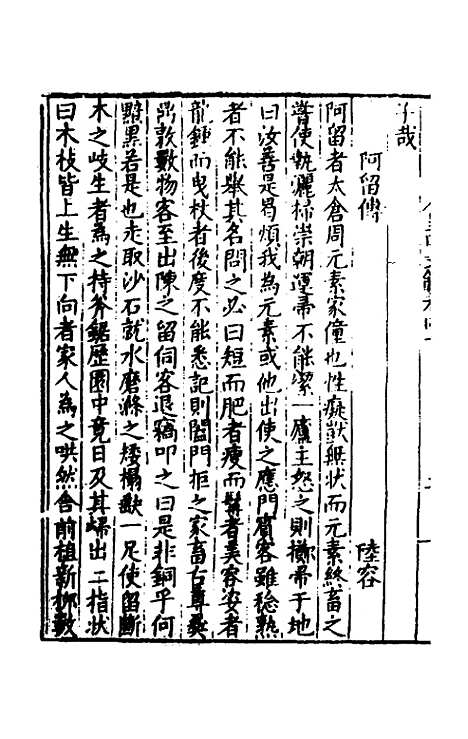 子哉
阿留傳 陸容
阿留者太倉周元素家僮也性癡獃無状而元素終畜之
嘗使執灑掃崇朝運帚不能潔一廬主怒之則擲帚于地
曰汝善是曷煩我為元素或他出使之應門賓客雖稔熟
者不能舉其名問之必曰短而肥者痩而髯者美容姿者
龍鍾而曳杖者後度不能悉記則闔門拒之家畜古尊彜
鼎敦數物客至出陳之留伺客退竊叩之曰是非銅乎何
黯黑若是也走取沙石就水磨滌之矮榻缺一足使留斷
木之歧生者為之持斧鋸歴園中竟日及其歸出二指状
曰木枝皆上生無下向者家人為之哄然舎前植新栁數